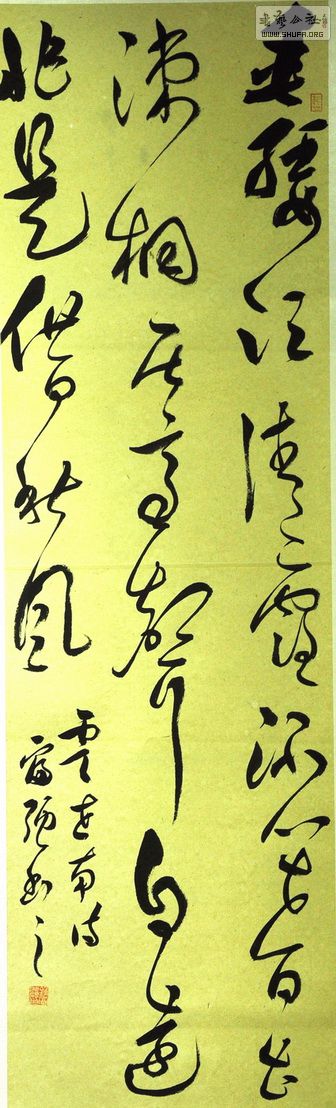 書藝公社
WWW.SHUFA.ORG
垂緌飲清露流響出
疏桐居高聲自遠
非是借秋風
虞世南詩
富强書之